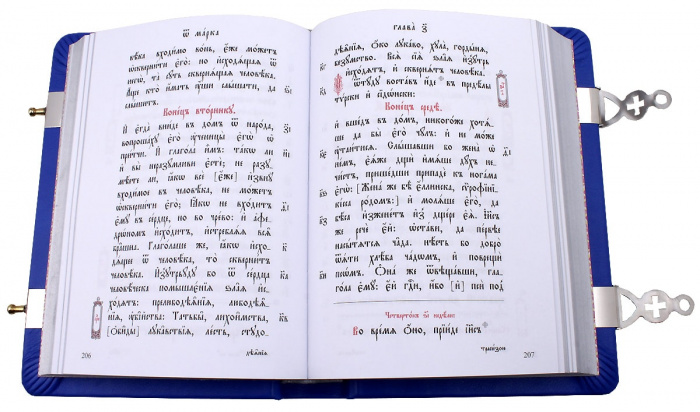 ѿ МАРКА
вѣка входимо вонь, є҆́же мо́жетъ
ѡ҆скверни́ти є҆го̀: но и҆сходѧ̑щаѧ ѿ
негѡ̀, та̑ сꙋ́ть сквернѧ̑щаѧ человѣ́ка.
А҆́ще кто̀ и҆́мать ᲂу҆́шы слы́шати, да
слы́шитъ.
Коне́цъ вто́рникꙋ.
И҆ є҆гда̀ вни́де въ до́мъ ѿ наро́да,
вопроша́хꙋ є҆го̀ ᲂу҆ченицы̀ є҆гѡ̀ ѡ҆
при́тчи. И҆ глаго́ла и҆̀мъ: та́кѡ ли
и҆ вы̀ неразꙋ́мливи є҆стѐ; не разꙋ-
мѣ́ете ли, ꙗ҆́кѡ всѐ [є҆́же] и҆звнꙋ̀
входи́мое въ человѣ́ка, не мо́жетъ
ѡ҆скверни́ти є҆гѡ̀; Ꙗ҆́кѡ не вхо́дитъ
є҆мꙋ̀ въ се́рдце, но во чре́во: и҆ а҆фе-
дрѡ́номъ и҆схо́дитъ, и҆стреблѧ́ѧ всѧ̑
бра̑шна. Глаго́лаше же, ꙗ҆́кѡ и҆схо-
дѧ́щее ѿ человѣ́ка, то̀ скверни́тъ
человѣ́ка. И҆знꙋтрьꙋ́дꙋ бо ѿ се́рдца
человѣ́ческа помышлє́нїѧ ѕла̑ѧ и҆схо-
дѧ́тъ: прелюбодѣѧ̑нїѧ, любодѣѧ̑-
нїѧ, ᲂу҆бі̑йства: Татьбы̑, лихои̑мства,
[ѻ҆би̑ды] лꙋка̑вствїѧ, ле́сть, стꙋдо-
206
дѣѧ̑нїѧ
ГЛАВА̀ З҃
дѣѧ̑нїѧ, ѻ҆́ко лꙋка́во, хꙋла̀, горды́нѧ,
безꙋ́мство. Всѧ̑ сїѧ̑ ѕла̑ѧ и҆знꙋ́трь
и҆схо́дѧтъ, и҆ сквернѧ́тъ человѣ́ка.
Ѿтꙋ́дꙋ воста́въ и҆́де въ предѣ́лы
ту̑рски и҆ сїдѡ̑нски:
Коне́цъ средѣ̀.
И҆ вше́дъ въ до́мъ, никогѡ́же хотѧ́-
ше да бы̀ є҆гѡ̀ чꙋ́лъ: и҆ не мо́же
ᲂу҆таи́тисѧ. Слы́шавши бо жена̀ ѡ҆
не́мъ, є҆ѧ́же дщѝ и҆мѧ́ше дꙋ́хъ не-
чи́стъ, прише́дши припадѐ къ нога́ма
є҆гѡ̀: [Жена́ же бѣ̀ є҆́ллинска, сѷрофїні-
кі́сса ро́домъ:] и҆ молѧ́ше є҆го̀, да
бѣ́са и҆зжене́тъ и҆з̾ дще́ре є҆ѧ̀. І҆и҃съ
же речѐ є҆́й: ѡ҆ста́ви, да пе́рвѣе
насы́тѧтсѧ ча̑да. нѣ́сть бо добро̀
ѿѧ́ти хлѣ́ба ча́дѡмъ, и҆ поврещѝ
псѡ́мъ. Ѻ҆на́ же ѿвѣща́вши, гла-
го́ла є҆мꙋ̀: є҆́й гдⷭ҇и, и҆́бо [и҆] псѝ под̾
Во вре́мѧ ѻ҆́но, прїи́де і҆и҃съ
207